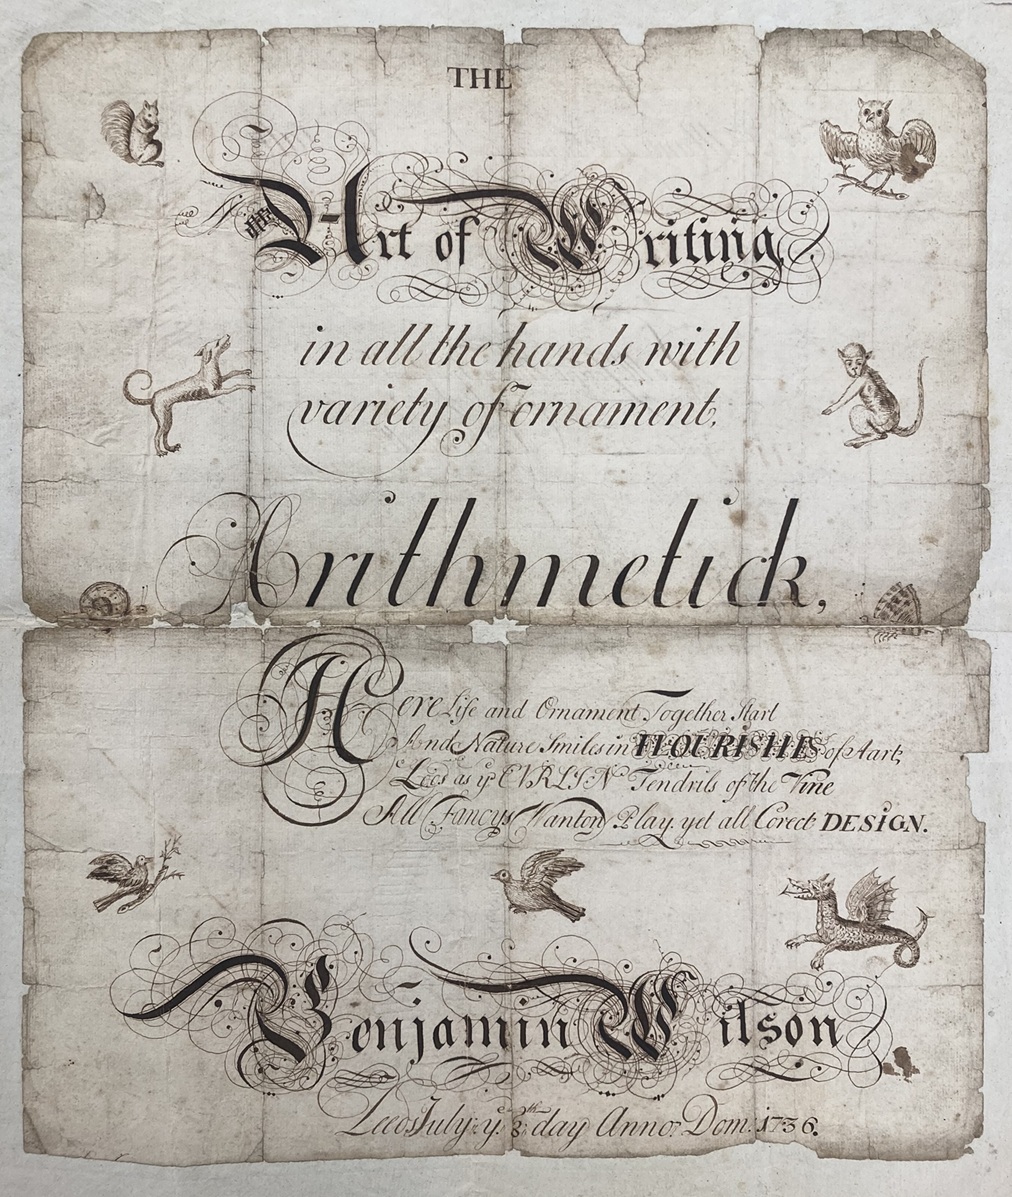 THE
Art of Writing
in all the hands with
variety of ornament,
Arithmetick,
Here Life and Ornament Together Start
And Nature Smiles in FLOURISHES of Aart;
Loos as yᵉ CVRLIN Tendrils of the Vine
All Fancys Wanton Play, yet all Corect DESIGN.
Benjamin Wilson
July: yᵉ 8ᵗʰ day Anno: Dom: 1736.